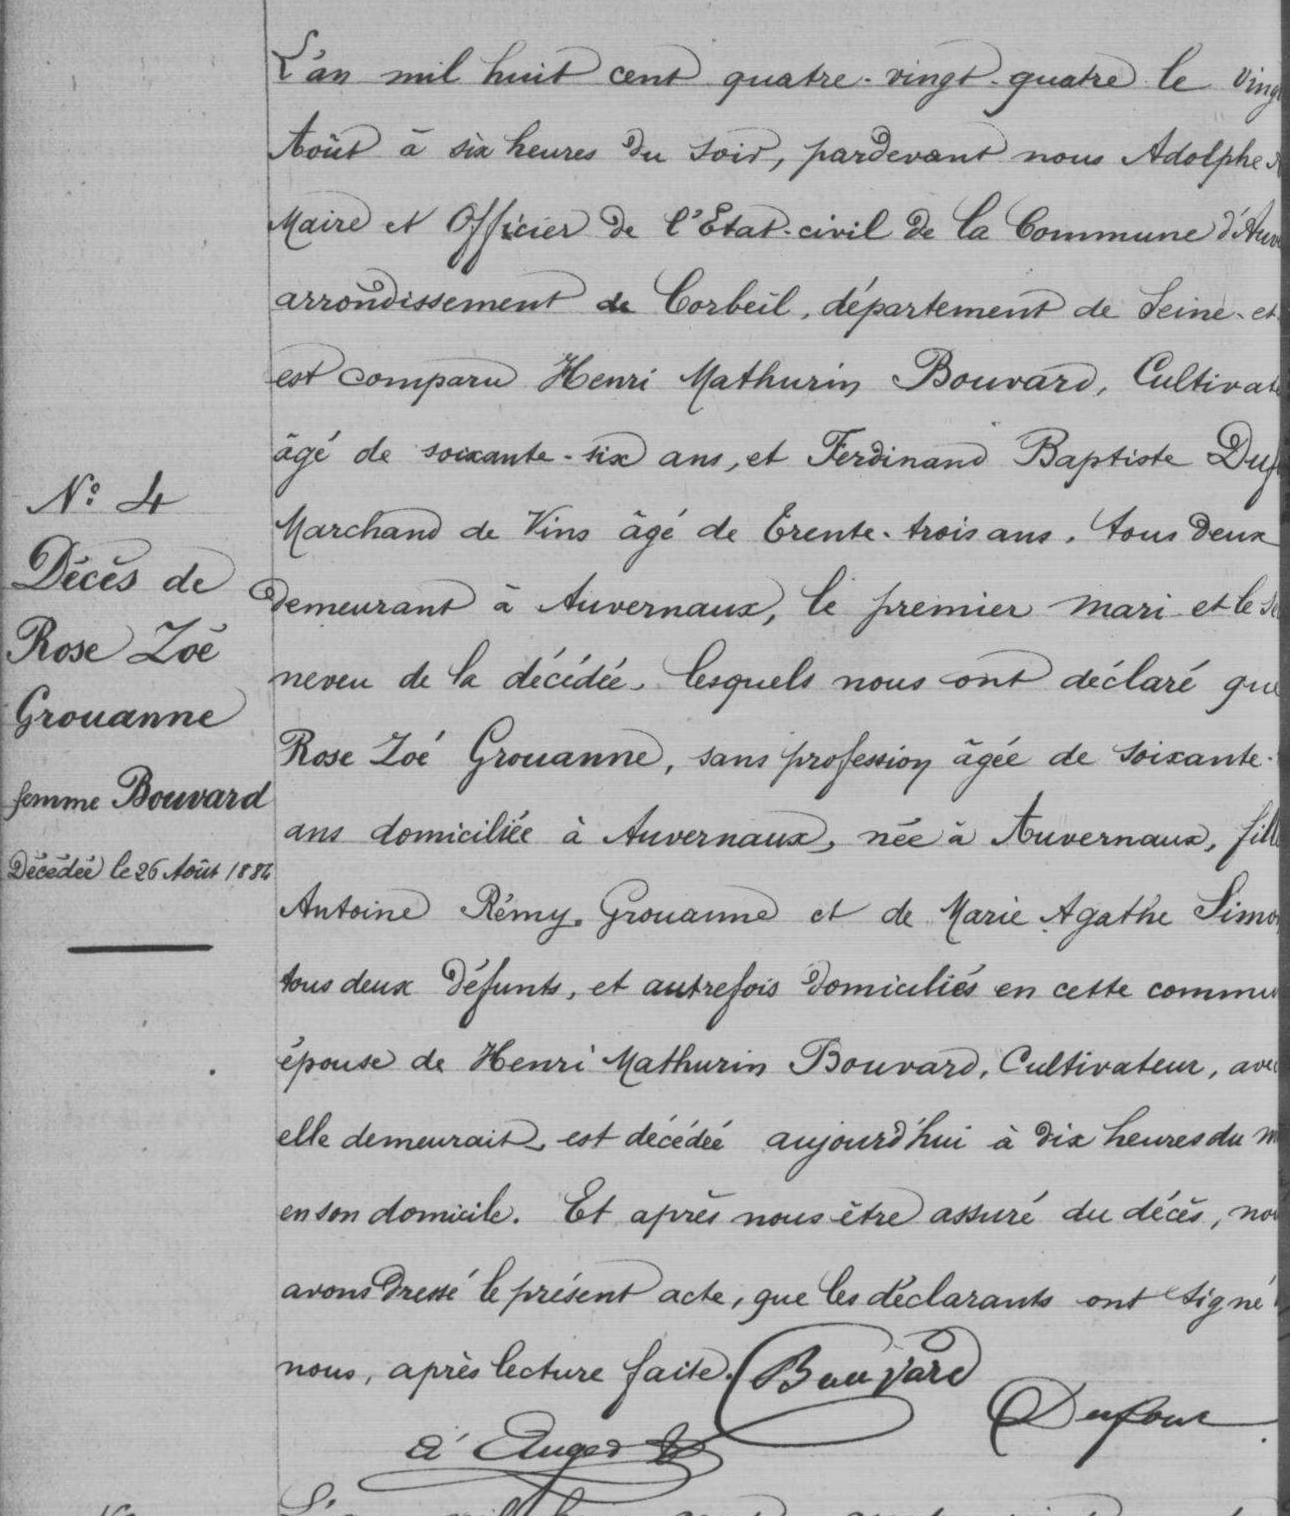 N° 4
Décès de
Rose Zoé
Grouanne
femme Bouvard
Décédée le 26 Août 1884
L'an mil huit cent quatre-vingt-quatre le ving
Août à six heures du soir, pardevant nous Adolphe
Maire et Officier de l'Etat-civil de la Commune d'Auve
arrondissement de Corbeil, département de Seine-et
est comparu Henri Mathurin Bouvard, Cultivat
âgé de soixante-six ans, et Ferdinand Baptiste Duf
Marchand de Vins âgé de trente-trois ans. tous deux
demeurant à Auvernaux, le premier mari et le se
neveu de la décédée. lesquels nous ont déclaré que
Rose Zoé Grouanne, sans profession âgée de soixante-
ans domiciliée à Auvernaux, née à Auvernaux, fille
Antoine Rémy Grouanne et de Marie Agathe Simo
tous deux défunts, et autrefois domiciliés en cette commu
épouse de Henri Mathurin Bouvard, Cultivateur, avec
elle demeurait, est décédée aujourd'hui à dix heures du m
en son domicile. Et après nous être assuré du décès, nou
avons dressé le présent acte, que les déclarants ont signé
nous, après lecture faite. Bouvard
Dufour
A Auger